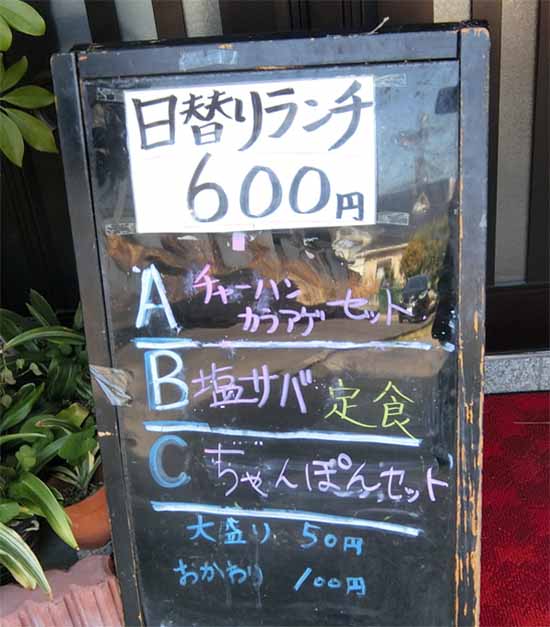 日替りランチ
600円
A チャーハン
カラアゲ セット
B 塩サバ 定食
C ちゃんぽんセット
大盛り 50円
おかわり 100円